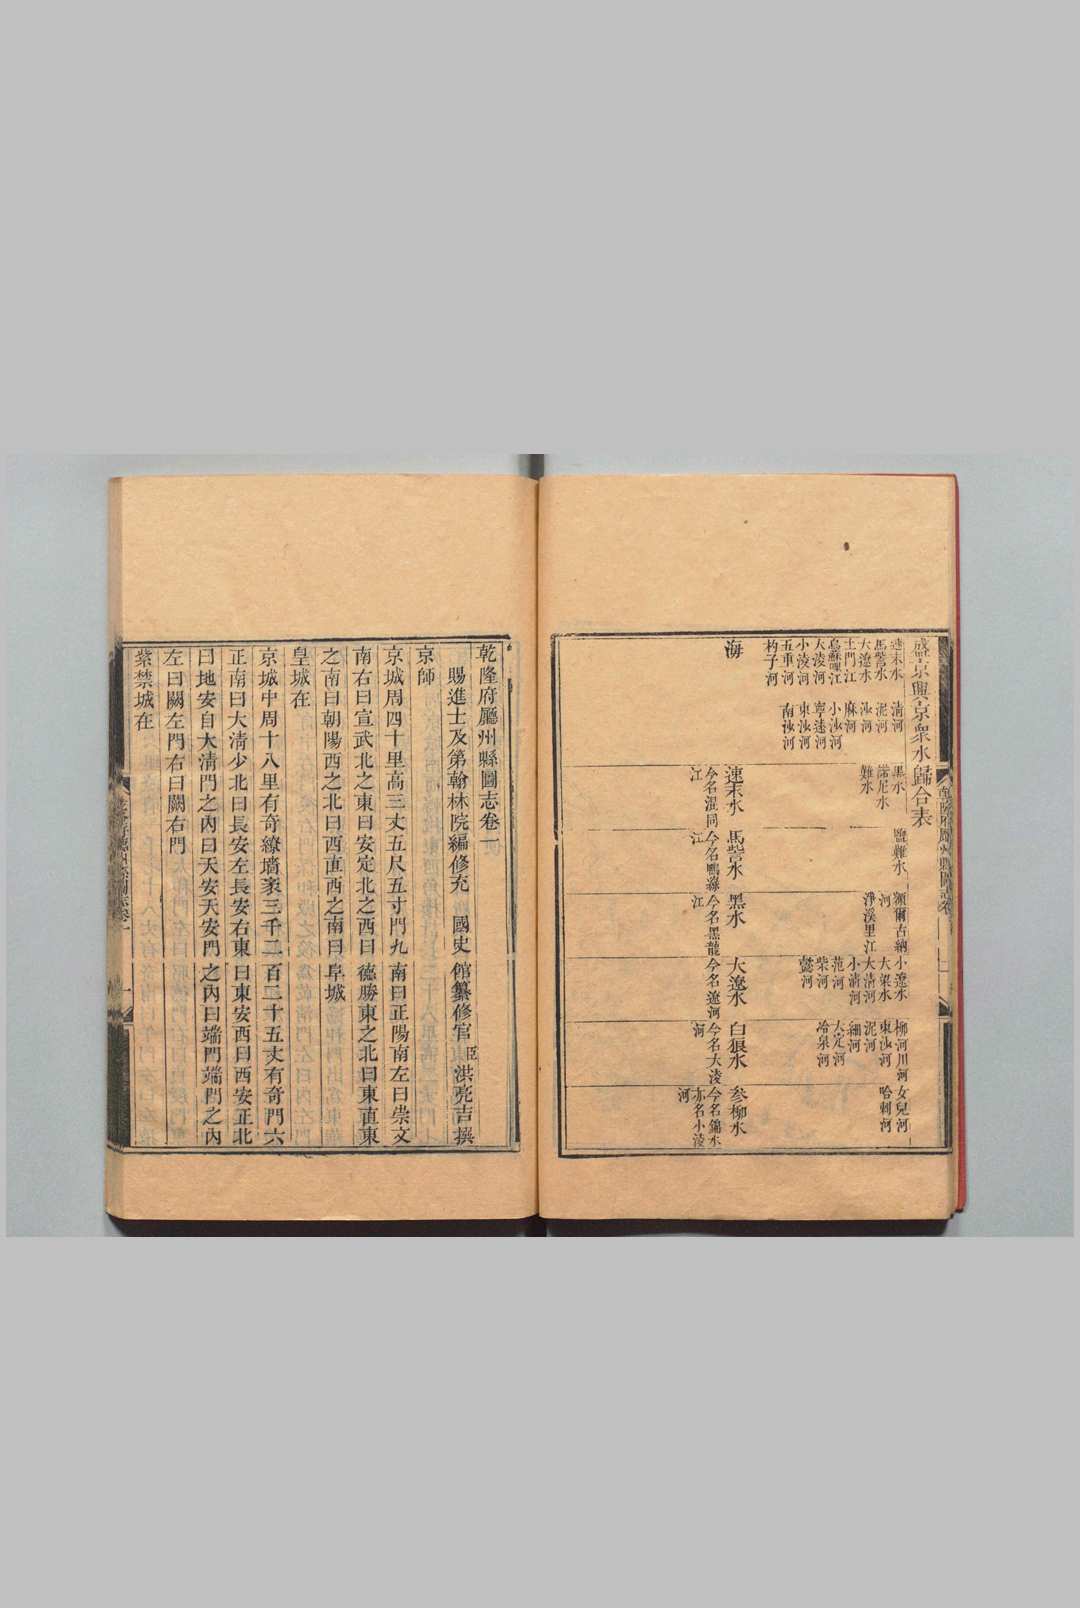 盛京興京衆水歸合表
速末水 清河
馬訾水 泥河
大遼水 沙河
土門江 麻河
烏蘇哩江 小沙河
大淩河 寧遠河
小淩河 東沙河
五重河 南沙河
杓子河
海
黑水
諾尼水
難水
速末水
今名混同
江
鹽難水
馬訾水
今名鴨綠
江
額爾古納
河
淨溪里江
黑水
今名黑龍
江
小遼水
大梁水
大清河
小清河
范河
柴河
懿河
大遼水
今名遼河
柳河川河
東沙河
泥河
細河
大定河
冷泉河
白狼水
今名大淩
河
女兒河
哈剌河
參柳水
今名錦水
亦名小淩
河
乾隆府廳州縣圖志卷一
賜進士及第翰林院編修充 國史館纂修官臣洪亮吉撰
京師
京城周四十里高三丈五尺五寸門九南曰正陽南左曰崇文
南右曰宣武北之東曰安定北之西曰德勝東之北曰東直東
之南曰朝陽西之北曰西直西之南曰阜城
皇城在
京城中周十八里有奇繚墻袤三千二百二十五丈有奇門六
正南曰大淸少北曰長安左長安右東曰東安西曰西安正北
曰地安自大淸門之內曰天安天安門之內曰端門端門之內
左曰闕左門右曰闕右門
紫禁城在